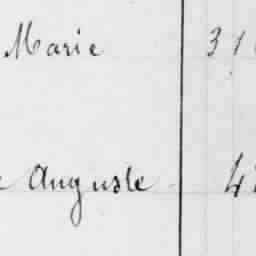 Marie 31
Auguste 4